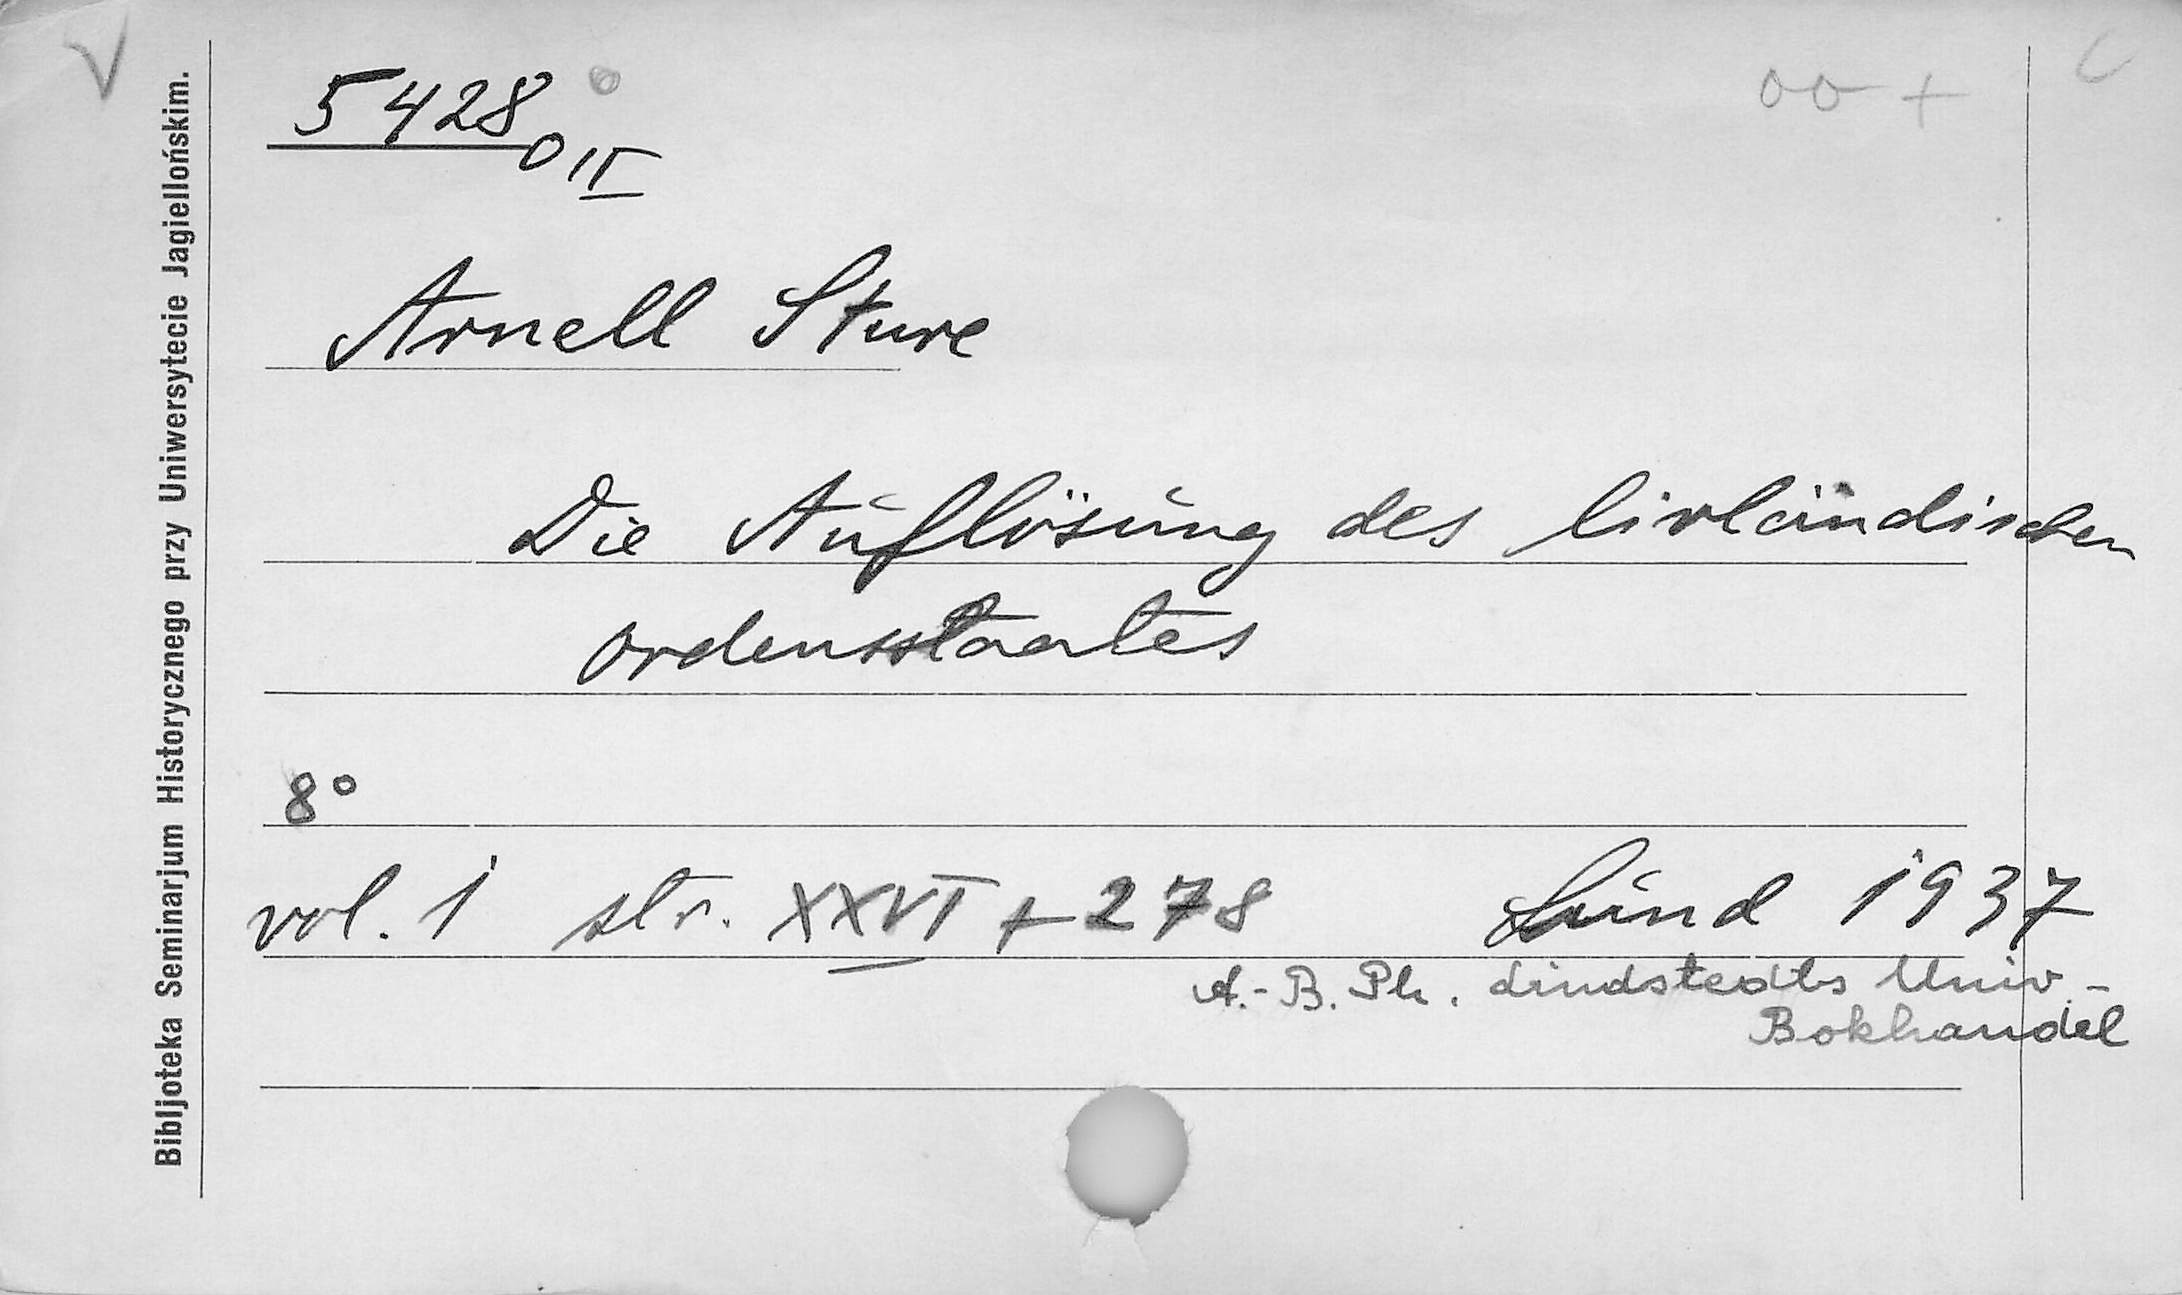 Bibljoteka Seminarjum Historycznego przy Uniwersytecie Jagiellońskim.
V
oo +
C
5428 o
O II
Arnell Sture
Die Auflösung des livländischen
Ordensstaates
8°
vol. 1 str. XXVI + 278 Lund 1937
A.-B. Ph. Lindstedts Univ.-
Bokhandel